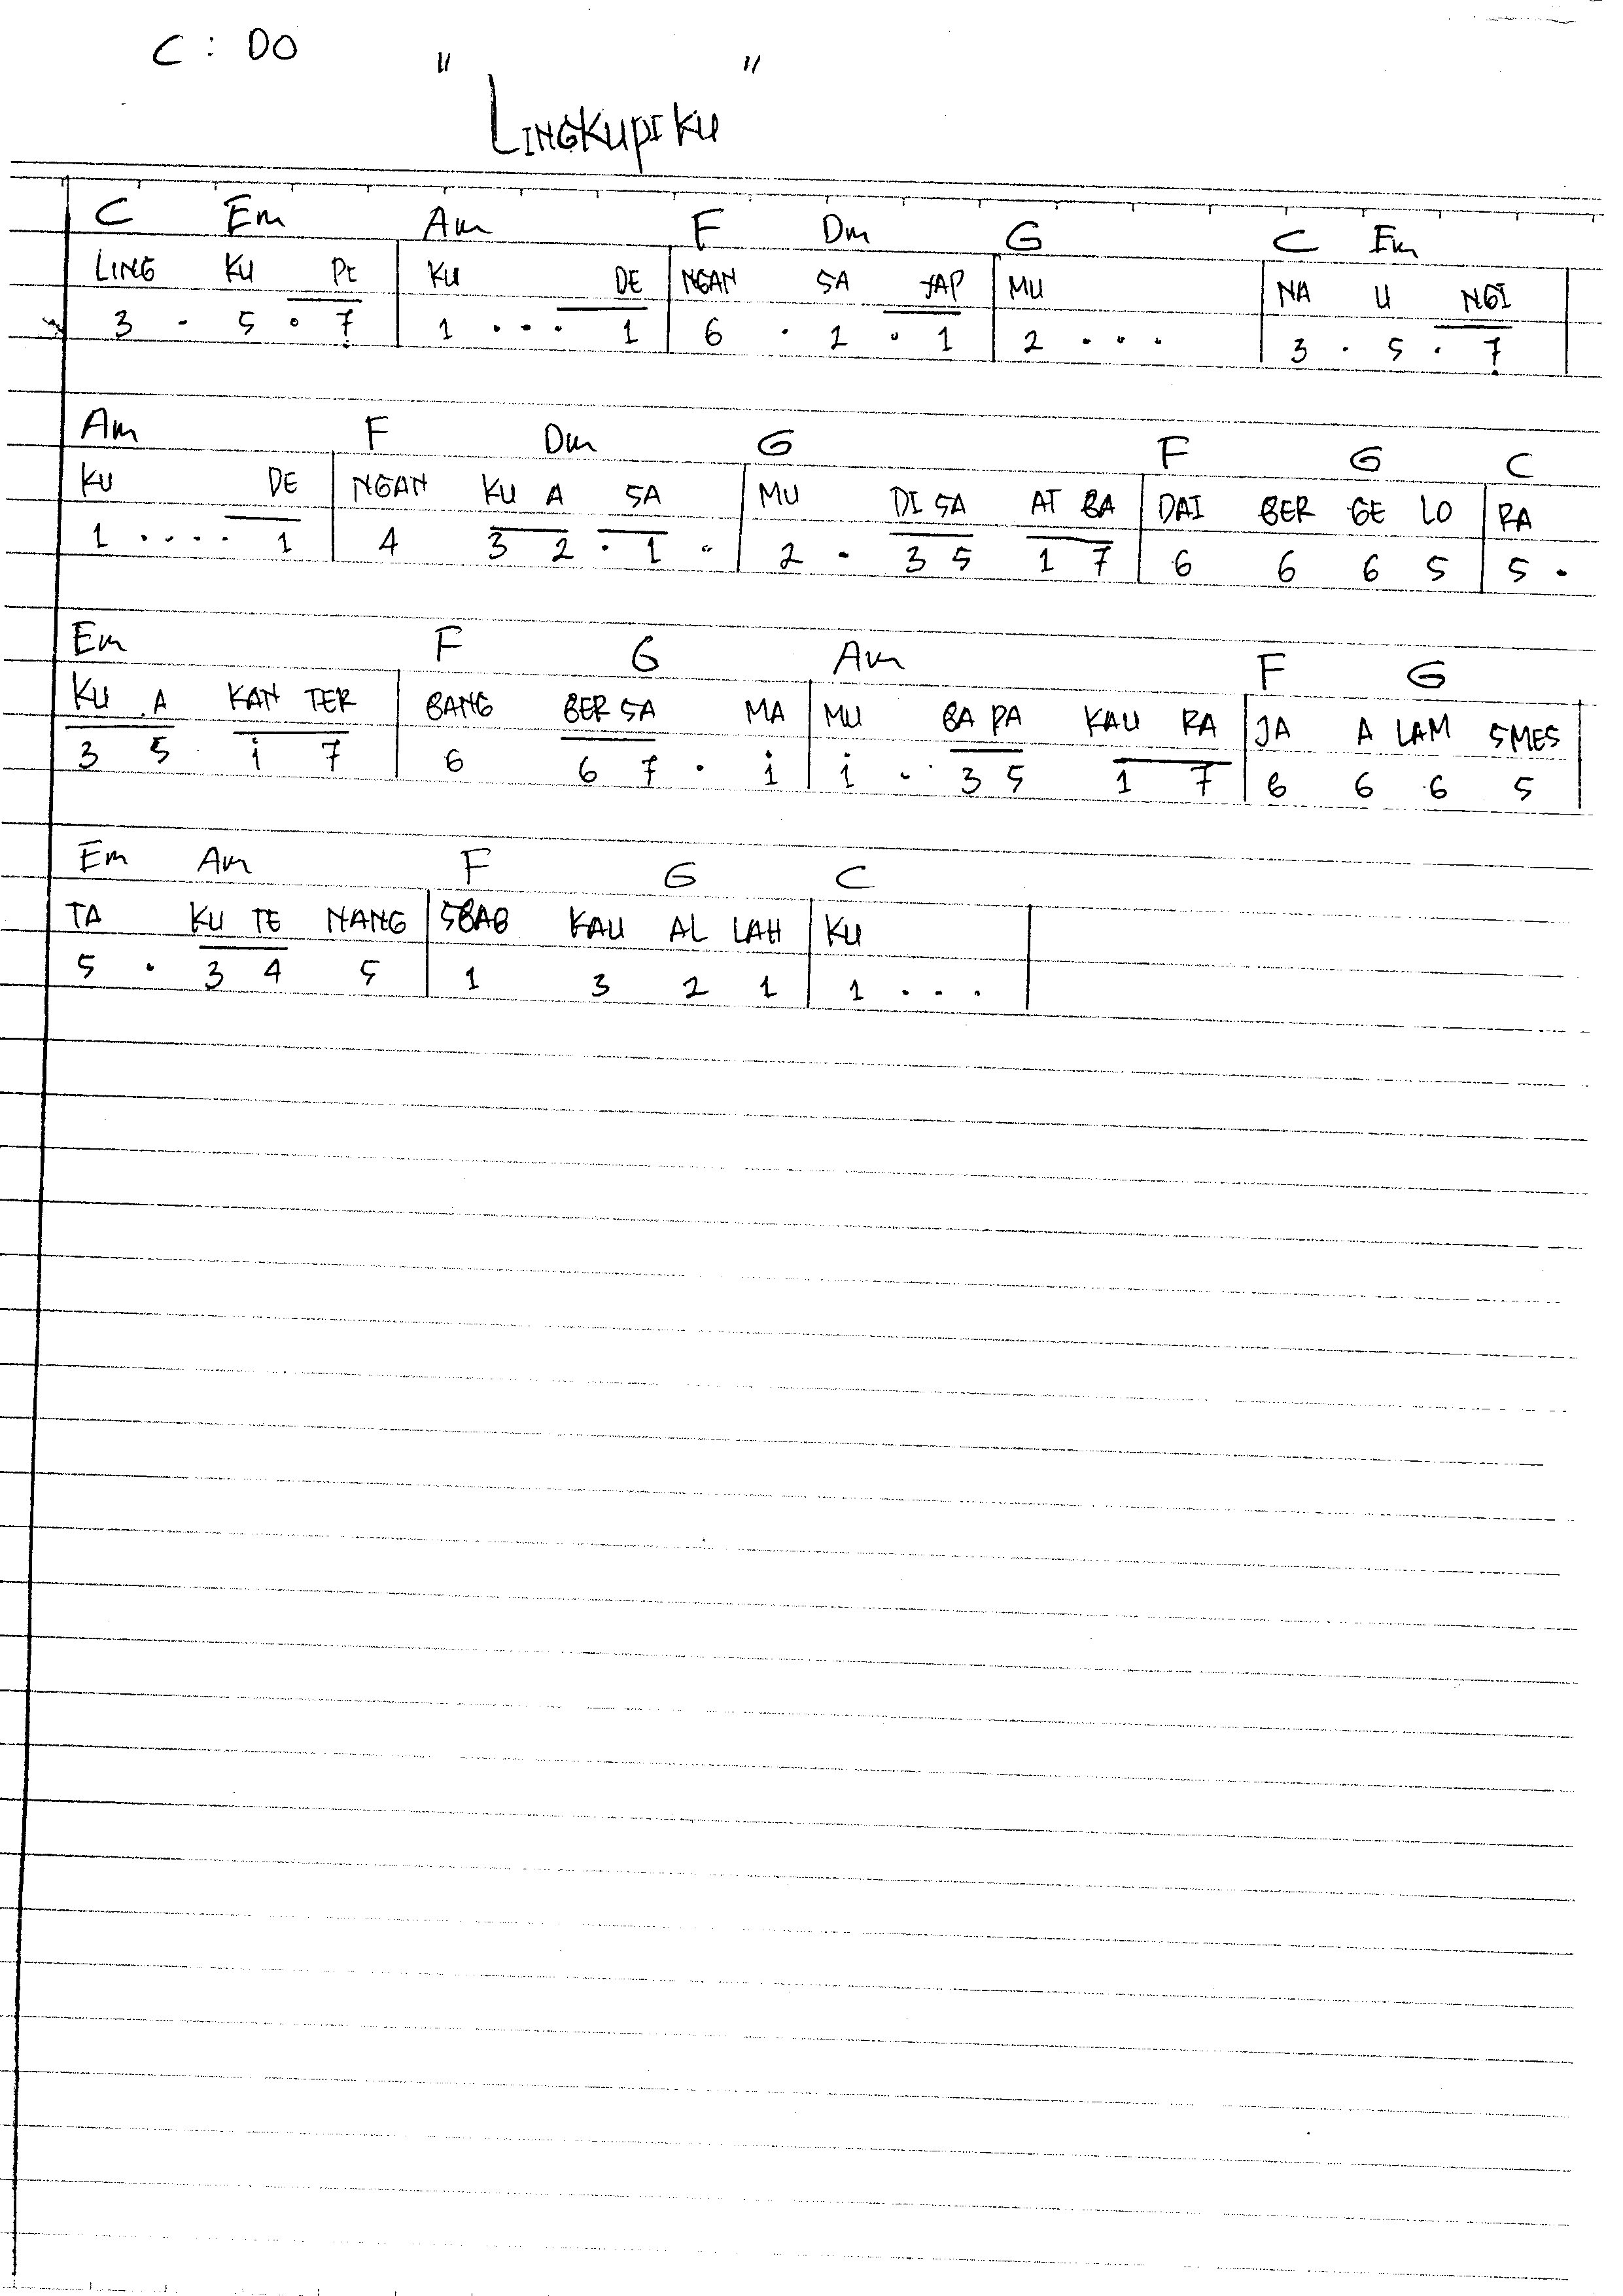 C : DO
" LINGKUPI KU "
C Em Am F Dm G C Em
LING KU PI | KU DE | NGAN SA YAP | MU | NA U NGI |
3 . 5 . 7̣ | 1 . . . 1 | 6 . 1 . 1 | 2 . . . | 3 . 5 . 7̣ |
Am F Dm G F G C
KU DE | NGAN KU A SA | MU DI SA AT BA | DAI BER GE LO | RA
1 . . . . 1 | 4 3 2 . 1 . | 2 . 3 5 1 7 | 6 6 6 5 | 5 .
Em F G Am F G
KU A KAN TER | BANG BER SA MA | MU BA PA KAU RA | JA A LAM SMES |
3 5 i 7 | 6 6 7 . i | i . 3 5 1 7 | 6 6 6 5 |
Em Am F G C
TA KU TE NANG | SBAB KAU AL LAH | KU |
5 . 3 4 5 | 1 3 2 1 | 1 . . . |